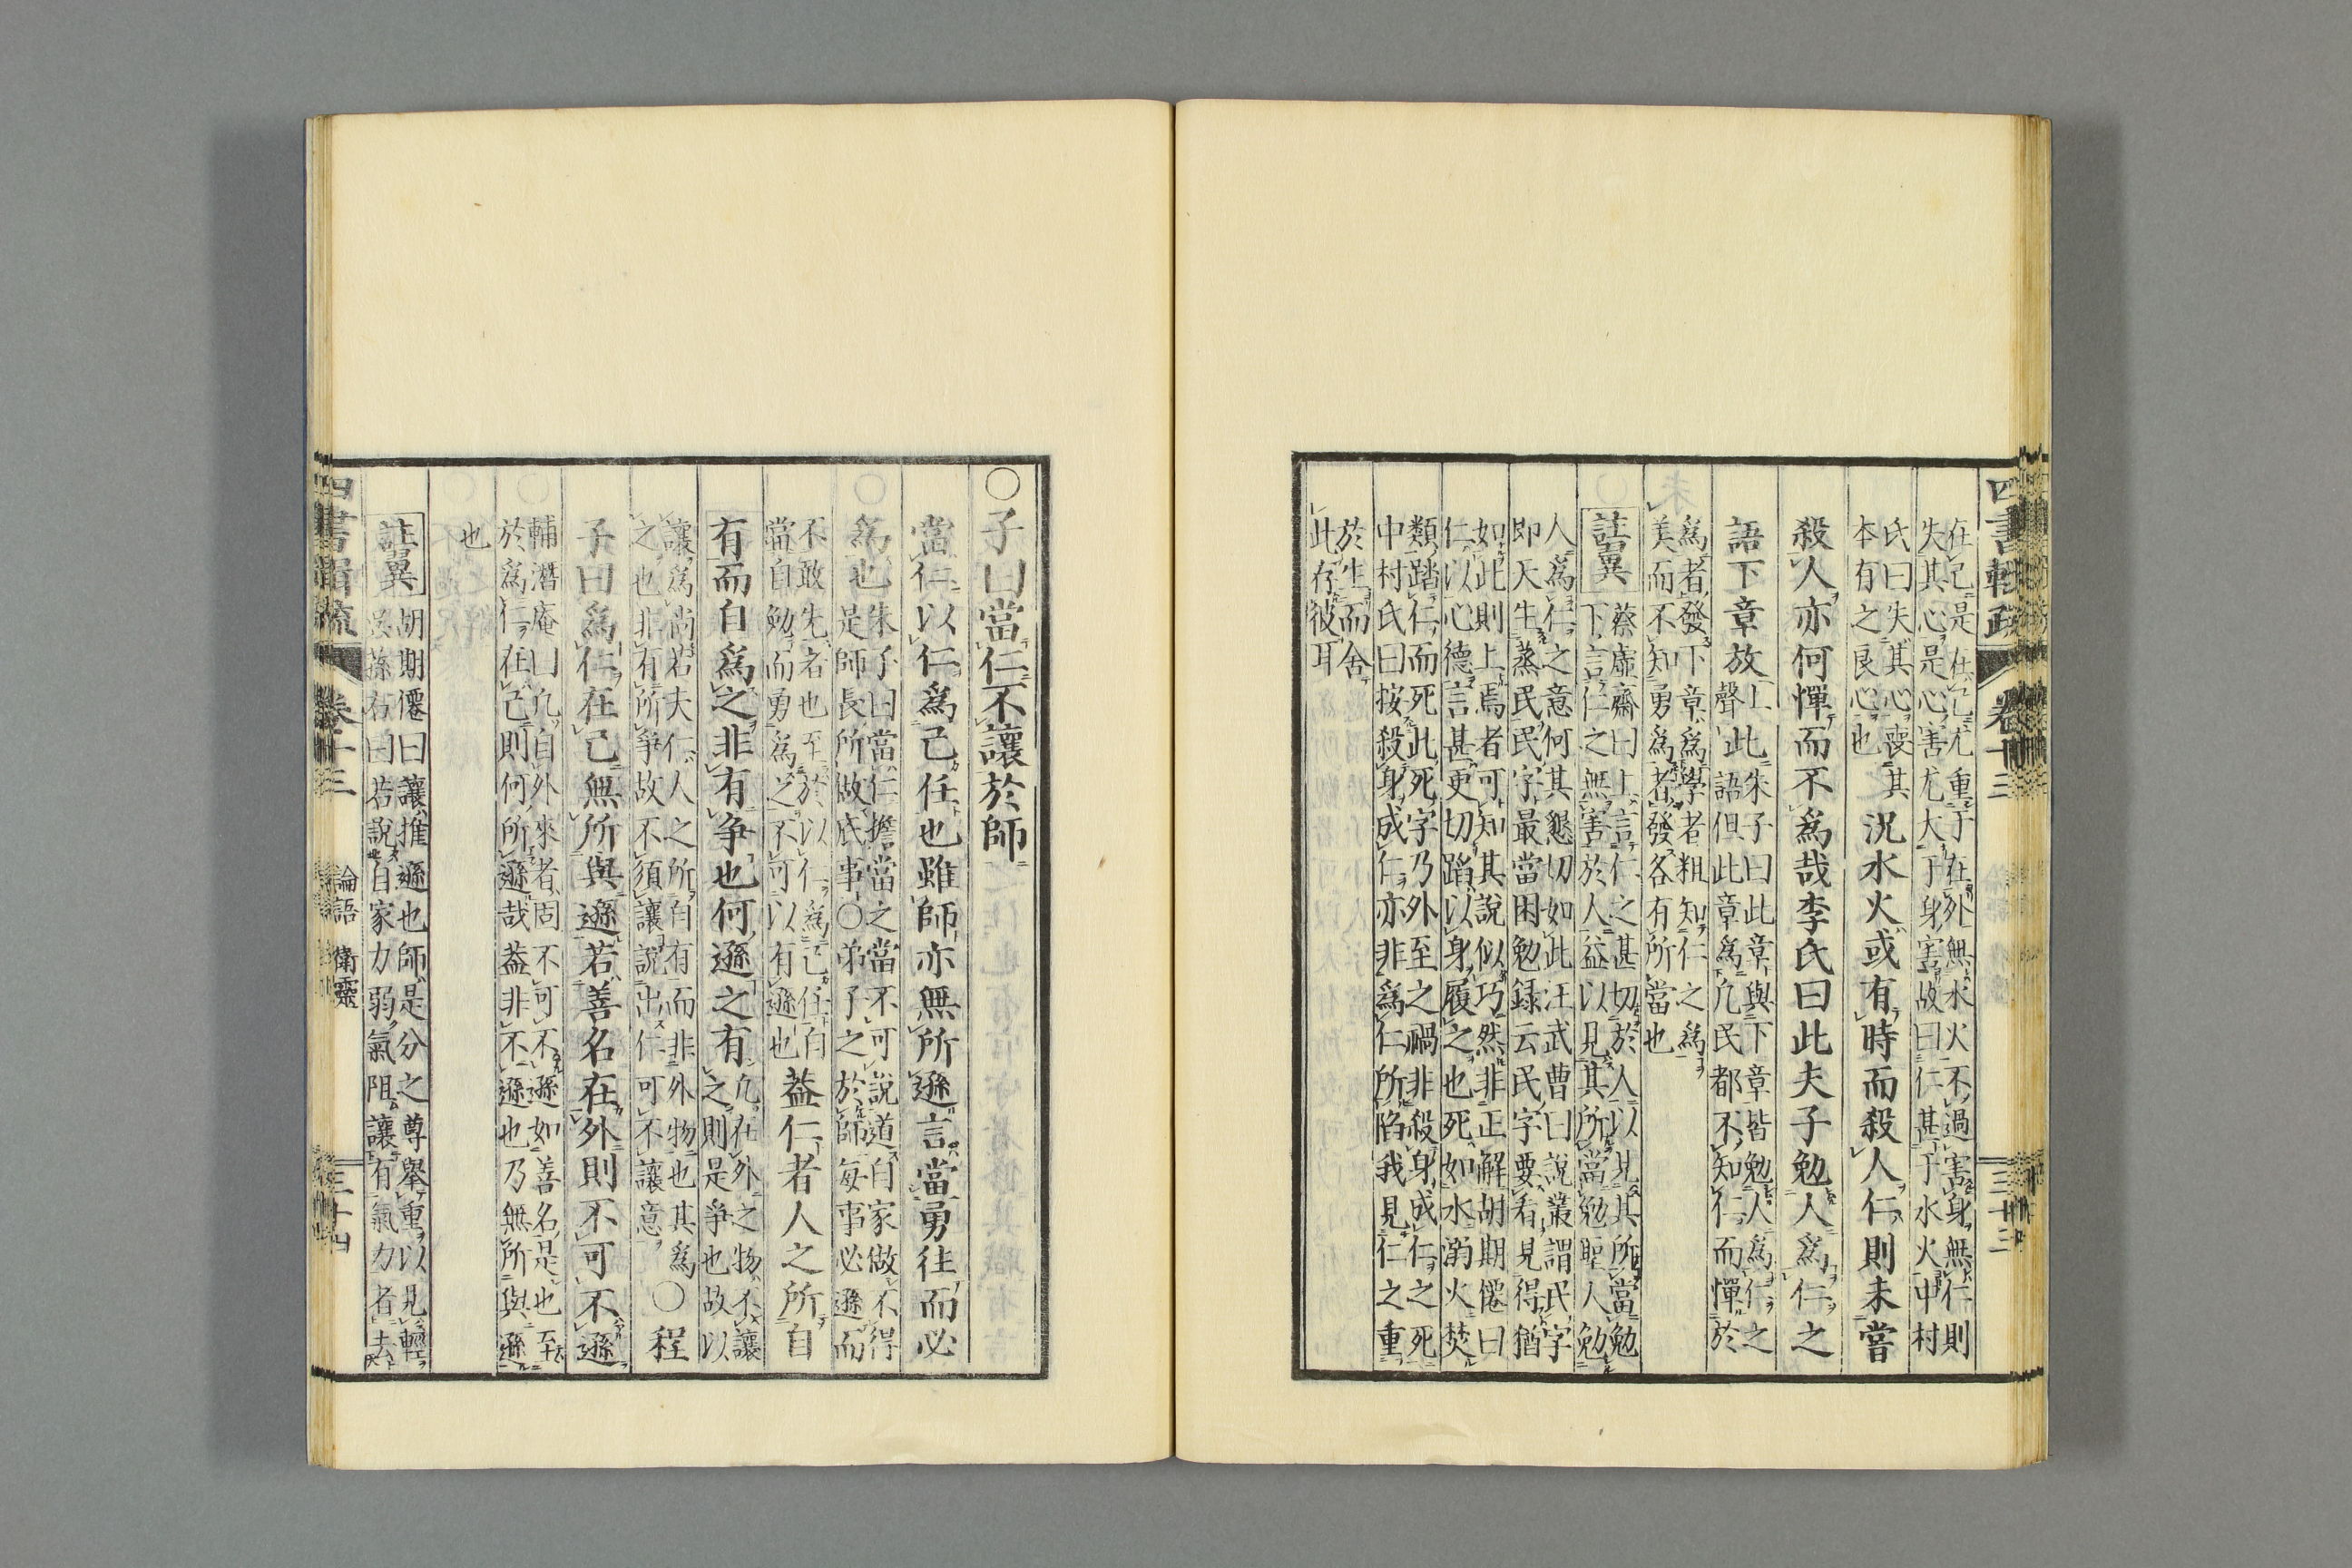 四書輯疏 卷十三 三十三
在己是在己尤重于在外無水火不過害身無仁則
失其心是心害尤大于身害故曰仁甚于水火中村
氏曰失其心喪其
本有之良心也
況水火或有時而殺人仁則未嘗
殺人亦何憚而不爲哉李氏曰此夫子勉人爲仁之
語下章放
上
聲
此
朱子曰此章與下章皆勉人爲仁之
語但此章爲凡民都不知仁而憚於
爲者發下章爲學者粗知仁之爲
美而不知勇爲者發各有所當也
註翼
蔡虛齋曰上言仁之甚切於人以見其所當勉
下言仁之無害於人益以見其所當勉聖人勉
人爲仁之意何其懇切如此汪武曹曰說叢謂民字
即天生蒸民民字最當困勉録云民字要看見得猶
如此則上焉者可知其說似巧然非正解胡期僊曰
仁以心德言甚更切蹈以身履之也死如水溺火焚
類踏仁而死此死字乃外至之禍非殺身成仁之死
中村氏曰按殺身成仁亦非爲仁所陷我見仁之重
於生而舍
此存彼耳
○子曰當仁不讓於師
當仁以仁爲己任也雖師亦無所遜言當勇往而必
爲也
朱子曰當仁擔當之當不可說道自家做不得
是師長所做底事○弟子之於師每事必遜而
不敢先者也至於以仁爲己任自
當自勉而勇爲之不可以有遜也
蓋仁者人之所自
有而自爲之非有爭也何遜之有
凡在外之物不讓
之則是爭也故以
讓爲尚若夫仁人之所自有而非外物也其爲
之也非有所爭故不須讓說出仁可不讓意
○程
子曰爲仁在己無所與遜若善名在外則不可不遜
輔潛庵曰凡自外來者固不可不遜如善名是也至
於爲仁在己則何所遜哉蓋非不遜也乃無所與遜
也
註翼
胡期僊曰讓推遜也師是分之尊舉重以見輕
吳蓀右曰若說自家力弱氣阻讓有氣力者去
四書輯疏 卷十三 論語 衛靈 三十四